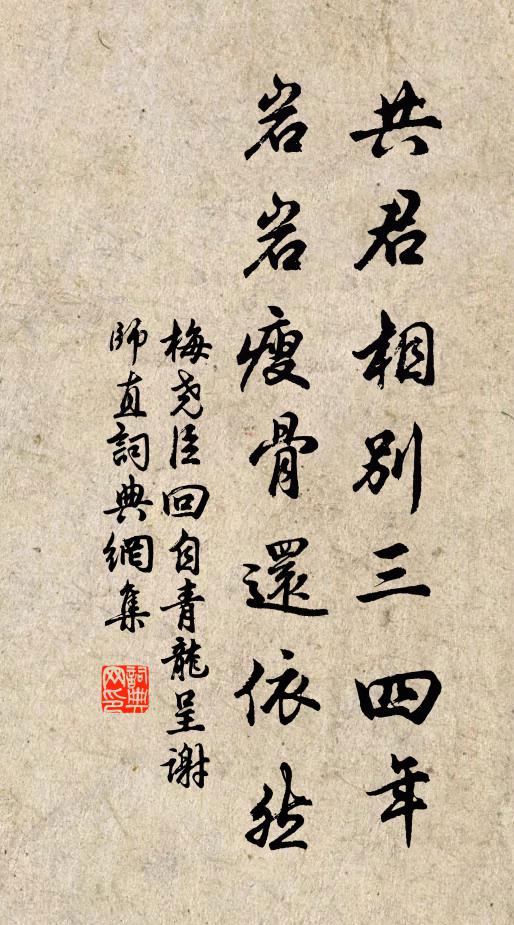 共君相别三四年
岩岩瘦骨還依然
梅尧臣回自青龍呈謝
師直詞典網集
詞典
网印